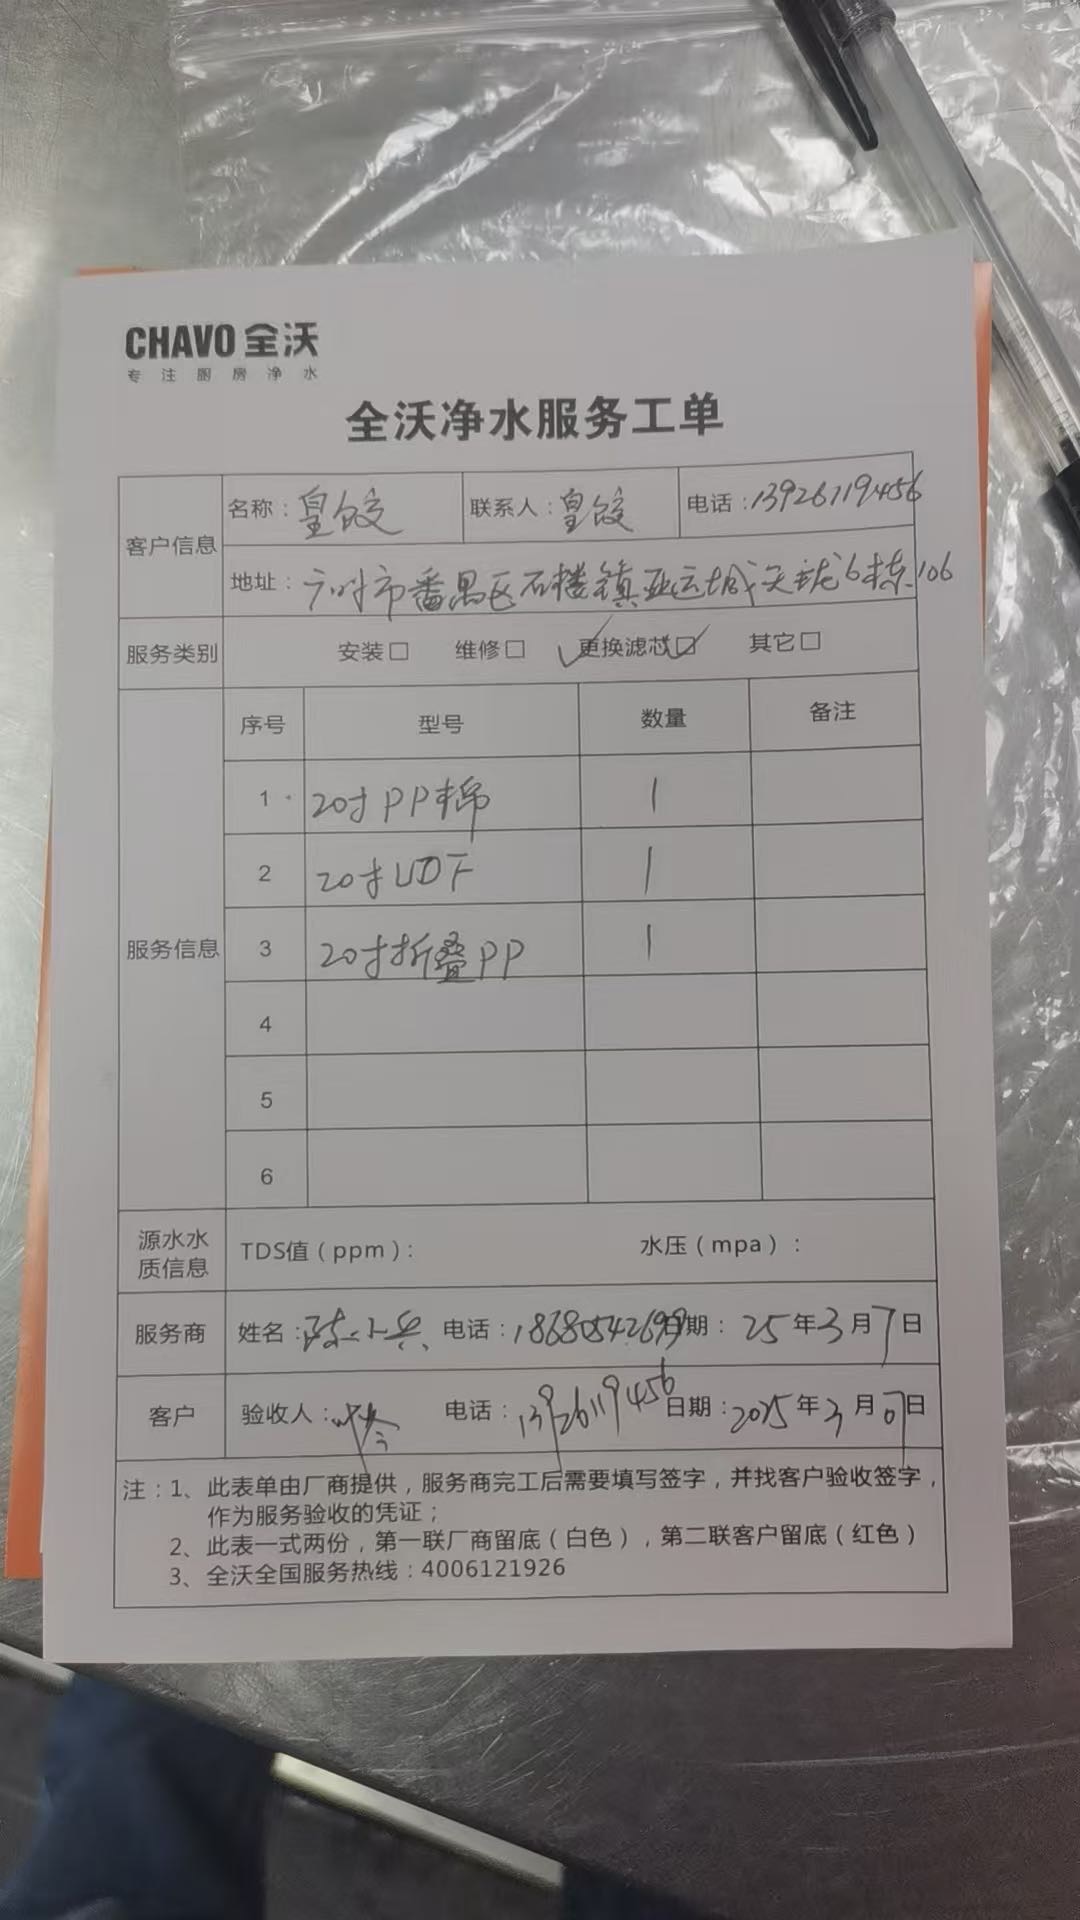 CHAVO 全沃
专注厨房净水
全沃净水服务工单
客户信息
名称：皇饺 联系人：皇饺 电话：13926119456
地址：广州市番禺区石楼镇亚运城天珑6栋106
服务类别 安装□ 维修□ 更换滤芯☑ 其它□
服务信息
序号 型号 数量 备注
1 20寸PP棉 1
2 20寸UDF 1
3 20寸折叠PP 1
4
5
6
源水水质信息 TDS值（ppm）： 水压（mpa）：
服务商 姓名：陈小兵 电话：18680542699 日期：25年3月7日
客户 验收人： 电话：13926119456 日期：2025年3月07日
注：1、此表单由厂商提供，服务商完工后需要填写签字，并找客户验收签字，
作为服务验收的凭证；
2、此表一式两份，第一联厂商留底（白色），第二联客户留底（红色）
3、全沃全国服务热线：4006121926